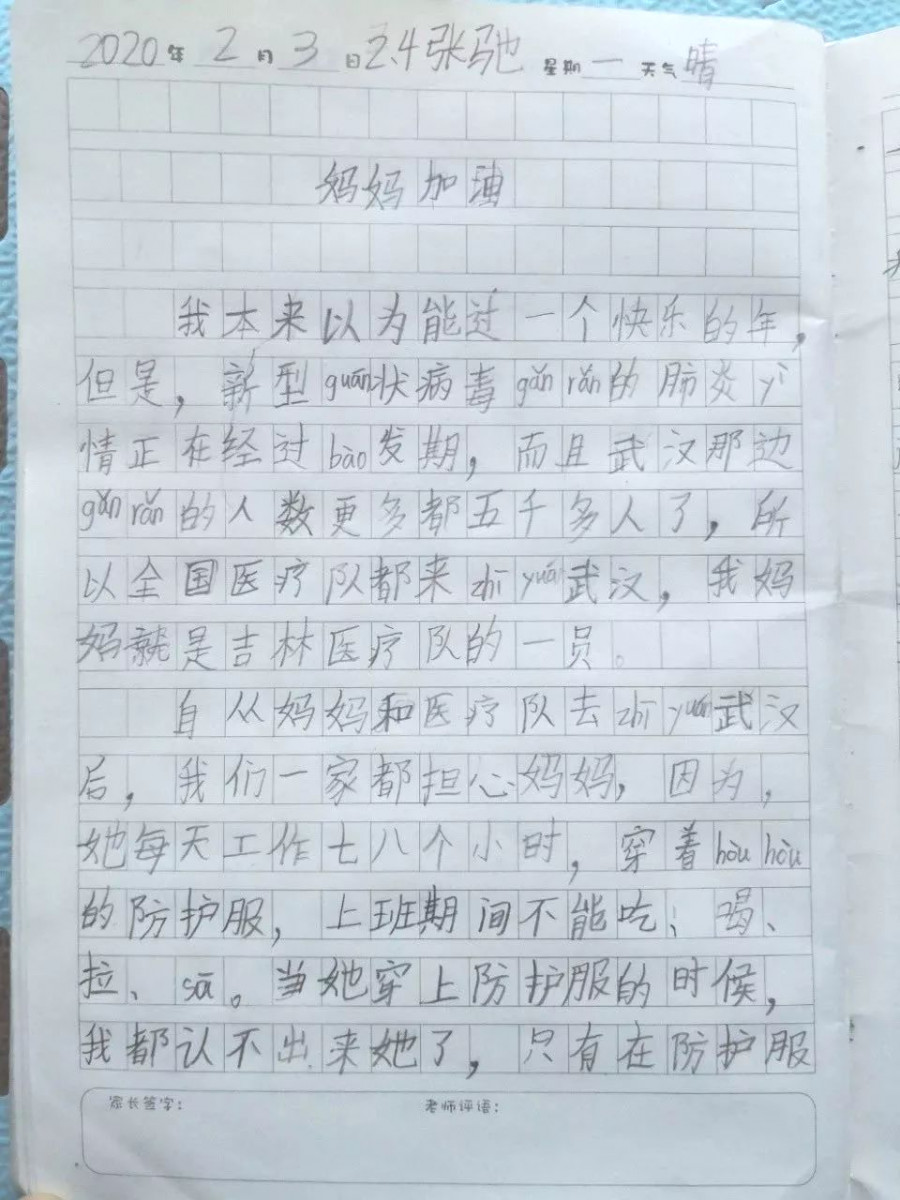 2020年 2月 3日 2.4张驰 星期一 天气 晴
妈妈加油
我本来以为能过一个快乐的年，
但是，新型guān状病毒gǎn rǎn的肺炎yì
情正在经过bào发期，而且武汉那边
gǎn rǎn的人数更多都五千多人了，所
以全国医疗队都来zhī yuán武汉，我妈
妈就是吉林医疗队的一员。
自从妈妈和医疗队去zhī yuán武汉
后，我们一家都担心妈妈，因为，
她每天工作七八个小时，穿着hòu hòu
的防护服，上班期间不能吃、喝、
拉、sā。当她穿上防护服的时候，
我都认不出来她了，只有在防护服
家长签字： 老师评语：